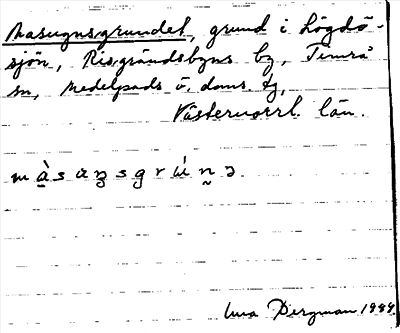 Masugnsgrundet, grund i Lögdö-
sjön, Risgrändsbyns by, Timrå
sn, Medelpads ö. doms. tg,
Västernorrl. län.
m à s a ŋ s g r ú n ə.
Bergman 1989.